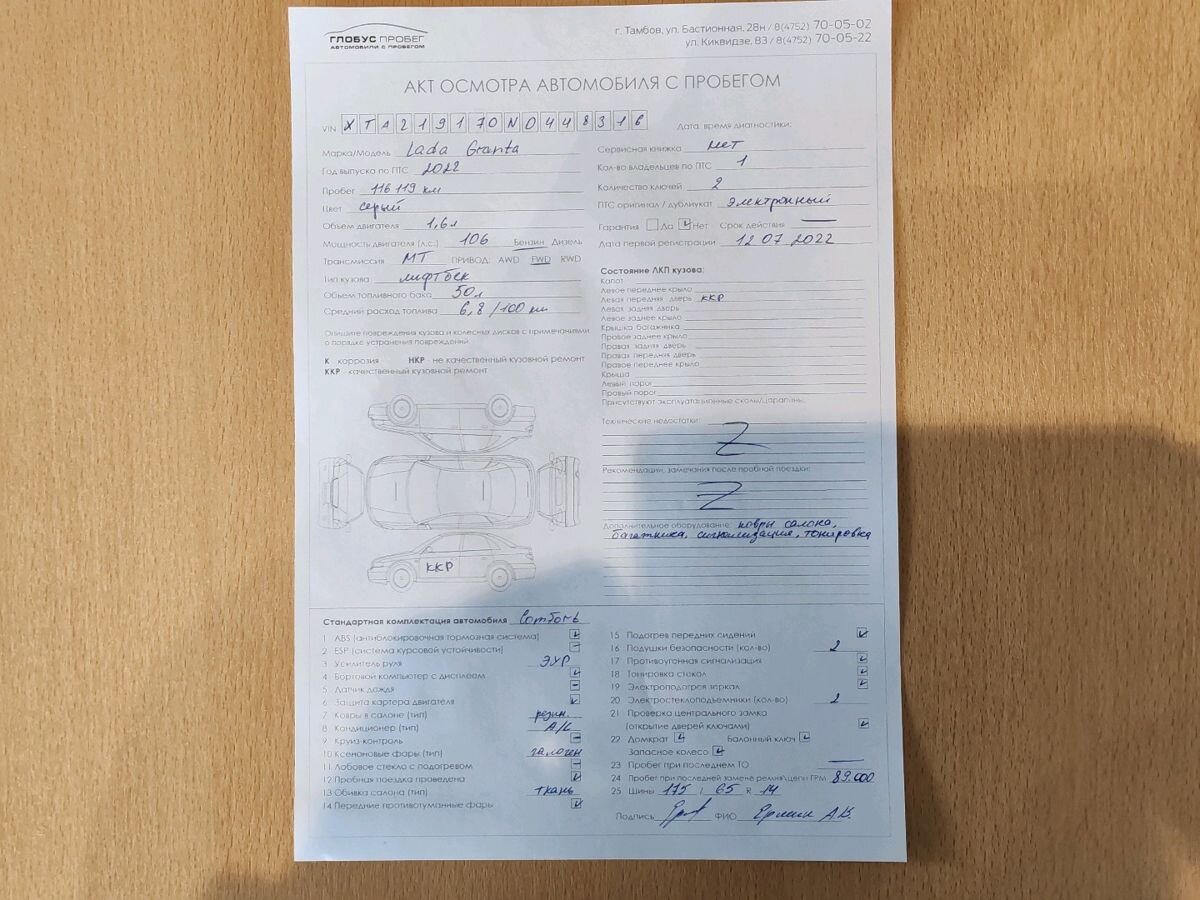 ГЛОБУС ПРОБЕГ
АВТОМОБИЛИ С ПРОБЕГОМ
г. Тамбов, ул. Бастионная, 28н / 8(4752) 70-05-02
ул. Киквидзе, 83 / 8(4752) 70-05-22
АКТ ОСМОТРА АВТОМОБИЛЯ С ПРОБЕГОМ
VIN XTA219170N0448316
Марка/Модель Lada Granta
Год выпуска по ПТС 2022
Пробег 116 119 км
Цвет серый
Объем двигателя 1,6 л
Мощность двигателя (л.с.) 106 Бензин Дизель
Трансмиссия МТ ПРИВОД: AWD FWD RWD
Тип кузова лифтбек
Объем топливного бака 50 л
Средний расход топлива 6,8 /100 км
Опишите повреждения кузова и колесных дисков с примечаниями
о порядке устранения повреждений.
К - коррозия НКР - не качественный кузовной ремонт
ККР - качественный кузовной ремонт
ККР
Дата, время диагностики:
Сервисная книжка нет
Кол-во владельцев по ПТС 1
Количество ключей 2
ПТС оригинал / дубликат электронный
Гарантия Да Нет Срок действия —
Дата первой регистрации 12 07 2022
Состояние ЛКП кузова:
Капот
Левое переднее крыло
Левая передняя дверь ККР
Левая задняя дверь
Левое заднее крыло
Крышка багажника
Правое заднее крыло
Правая задняя дверь
Правая передняя дверь
Правое переднее крыло
Крыша
Левый порог
Правый порог
Присутствуют эксплуатационные сколы/царапины.
Технические недостатки: Z
Рекомендации, замечания после пробной поездки:
Z
Дополнительное оборудование: ковры салона,
багажника, сигнализация, тонировка
Стандартная комплектация автомобиля Comfort
1 ABS (антиблокировочная тормозная система)
2 ESP (система курсовой устойчивости) –
3 Усилитель руля ЭУР
4 Бортовой компьютер с дисплеем
5 Датчик дождя –
6 Защита картера двигателя
7 Ковры в салоне (тип) резин.
8 Кондиционер (тип) A/C
9 Круиз-контроль –
10 Ксеноновые фары (тип) галоген
11 Лобовое стекло с подогревом –
12 Пробная поездка проведена
13 Обивка салона (тип) ткань
14 Передние противотуманные фары
15 Подогрев передних сидений
16 Подушки безопасности (кол-во) 2
17 Противоугонная сигнализация
18 Тонировка стекол
19 Электроподогрев зеркал
20 Электростеклоподъемники (кол-во) 2
21 Проверка центрального замка
(открытие дверей ключами)
22 Домкрат Балонный ключ
Запасное колесо
23 Пробег при последнем ТО —
24 Пробег при последней замене ремня/цепи ГРМ 89.000
25 Шины 175 / 65 R 14
Подпись ФИО А.В.